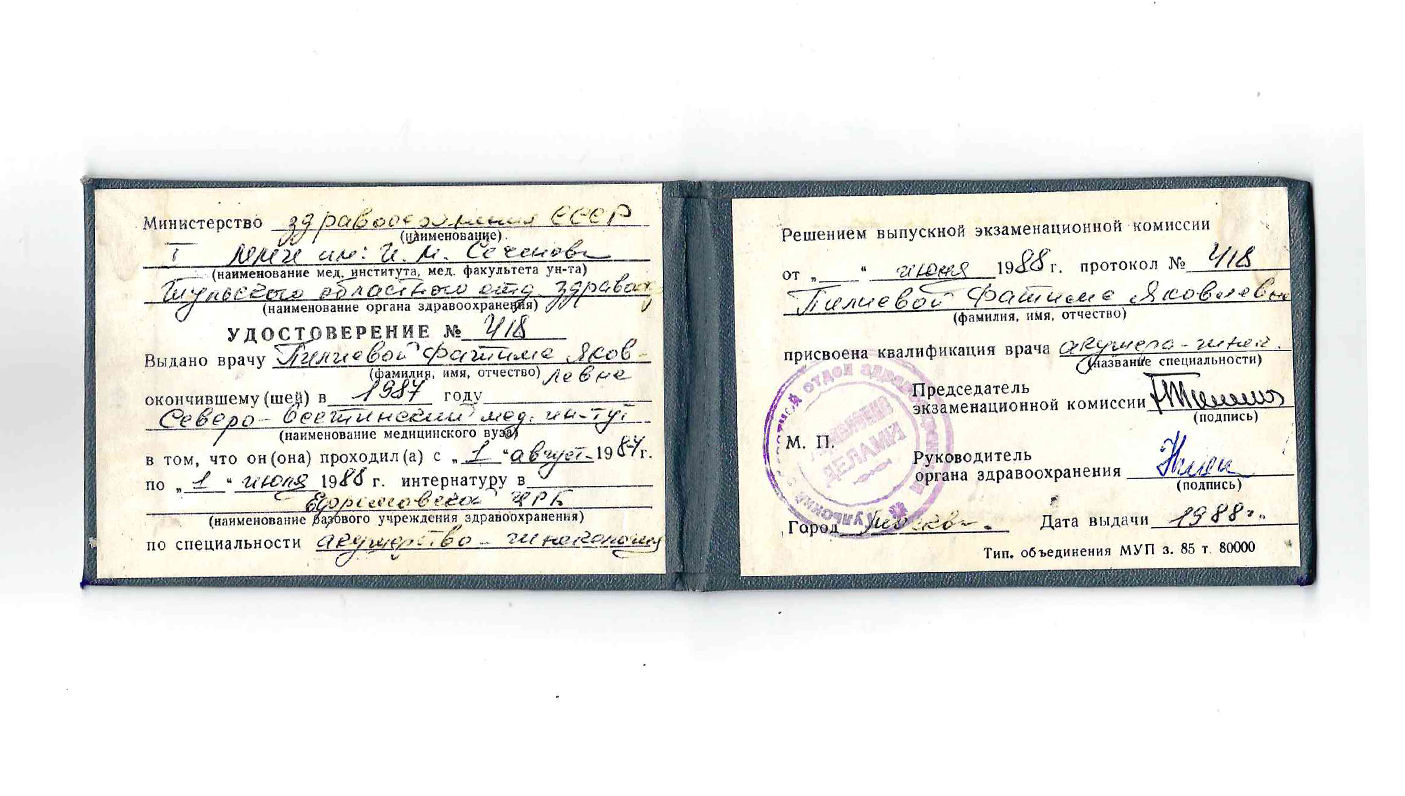 Министерство здравоохранения СССР
(наименование)
I ММИ им: И.М. Сеченова
(наименование мед. института, мед. факультета ун-та)
Тульского областного отд. здравоо
(наименование органа здравоохранения)
УДОСТОВЕРЕНИЕ № 418
Выдано врачу Пилиевой Фатиме Яков-
(фамилия, имя, отчество) левне
окончившему (шей) в 1987 году
Северо-Осетинский мед. ин-тут
(наименование медицинского вуза)
в том, что он (она) проходил(а) с „1" август 1987 г.
по „1" июня 1988 г. интернатуру в
Ефремовской ЦРБ
(наименование базового учреждения здравоохранения)
по специальности акушерство-гинекология
Решением выпускной экзаменационной комиссии
от „ " июня 1988 г. протокол № 418
Пилиевой Фатиме Яковлевне
(фамилия, имя, отчество)
присвоена квалификация врача акушера-гинек.
(название специальности)
Председатель
экзаменационной комиссии
(подпись)
М. П.
Руководитель
органа здравоохранения
(подпись)
Город Москва. Дата выдачи 1988 г.
Тип. объединения МУП з. 85 т. 80000
отдел здравоохранения
ДЕЛАМИ